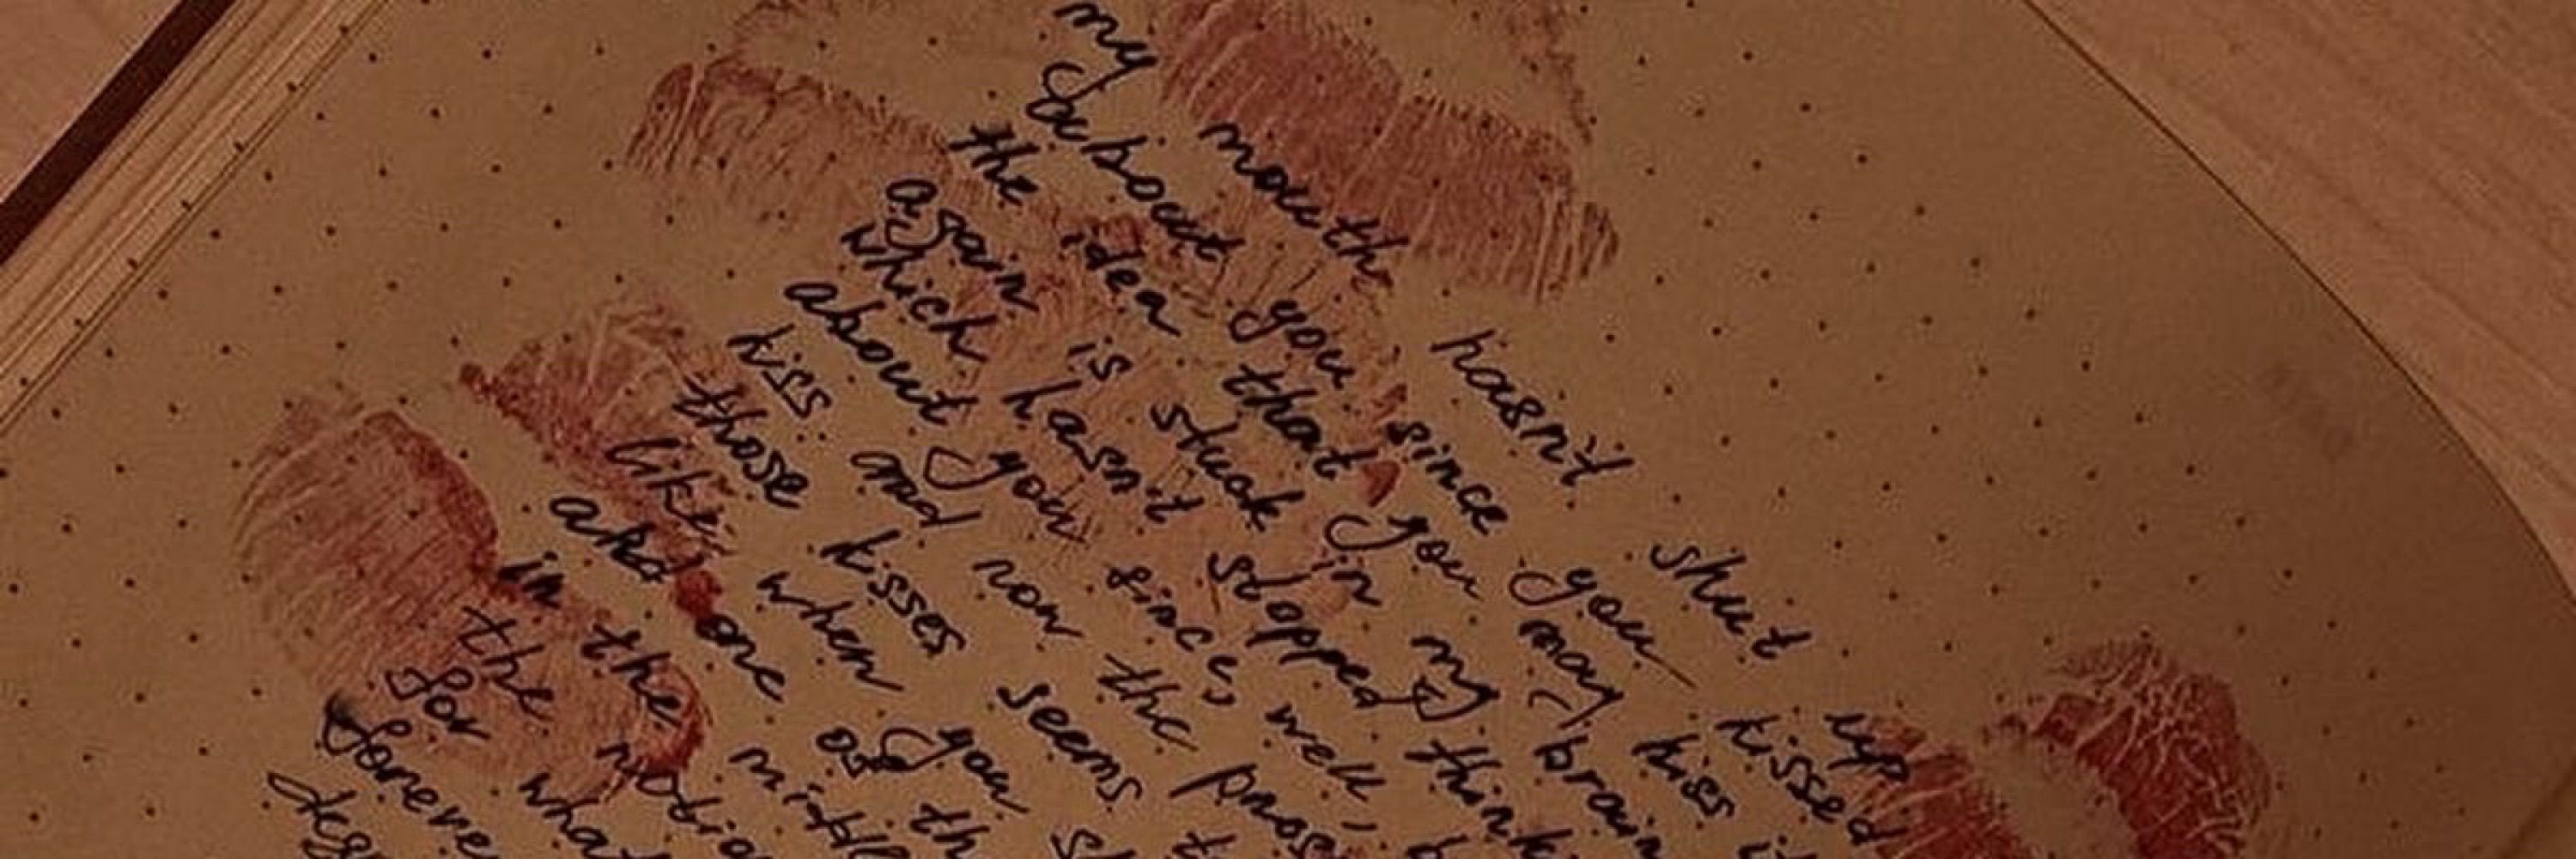 my mouth hasn't shut up
about you since you kissed
the idea that you may kiss it
again is stuck in my brain
which hasn't stopped think
about you since, well,
kiss and now the
those kisses seems
like when you
and one of th
in the middle
the
for what